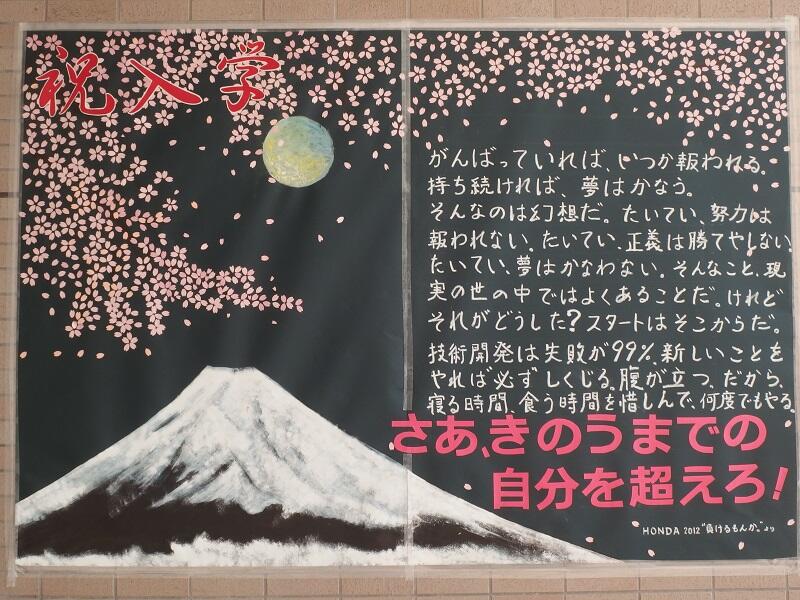 祝入学
がんばっていれば、いつか報われる。
持ち続ければ、夢はかなう。
そんなのは幻想だ。たいてい、努力は
報われない。たいてい、正義は勝てやしない。
たいてい、夢はかなわない。そんなこと、現
実の世の中ではよくあることだ。けれど
それがどうした?スタートはそこからだ。
技術開発は失敗が99%。新しいことを
やれば必ずしくじる。腹が立つ。だから、
寝る時間、食う時間を惜しんで、何度でもやる。
さあ、きのうまでの
自分を超えろ!
HONDA 2012 "負けるもんか。"より